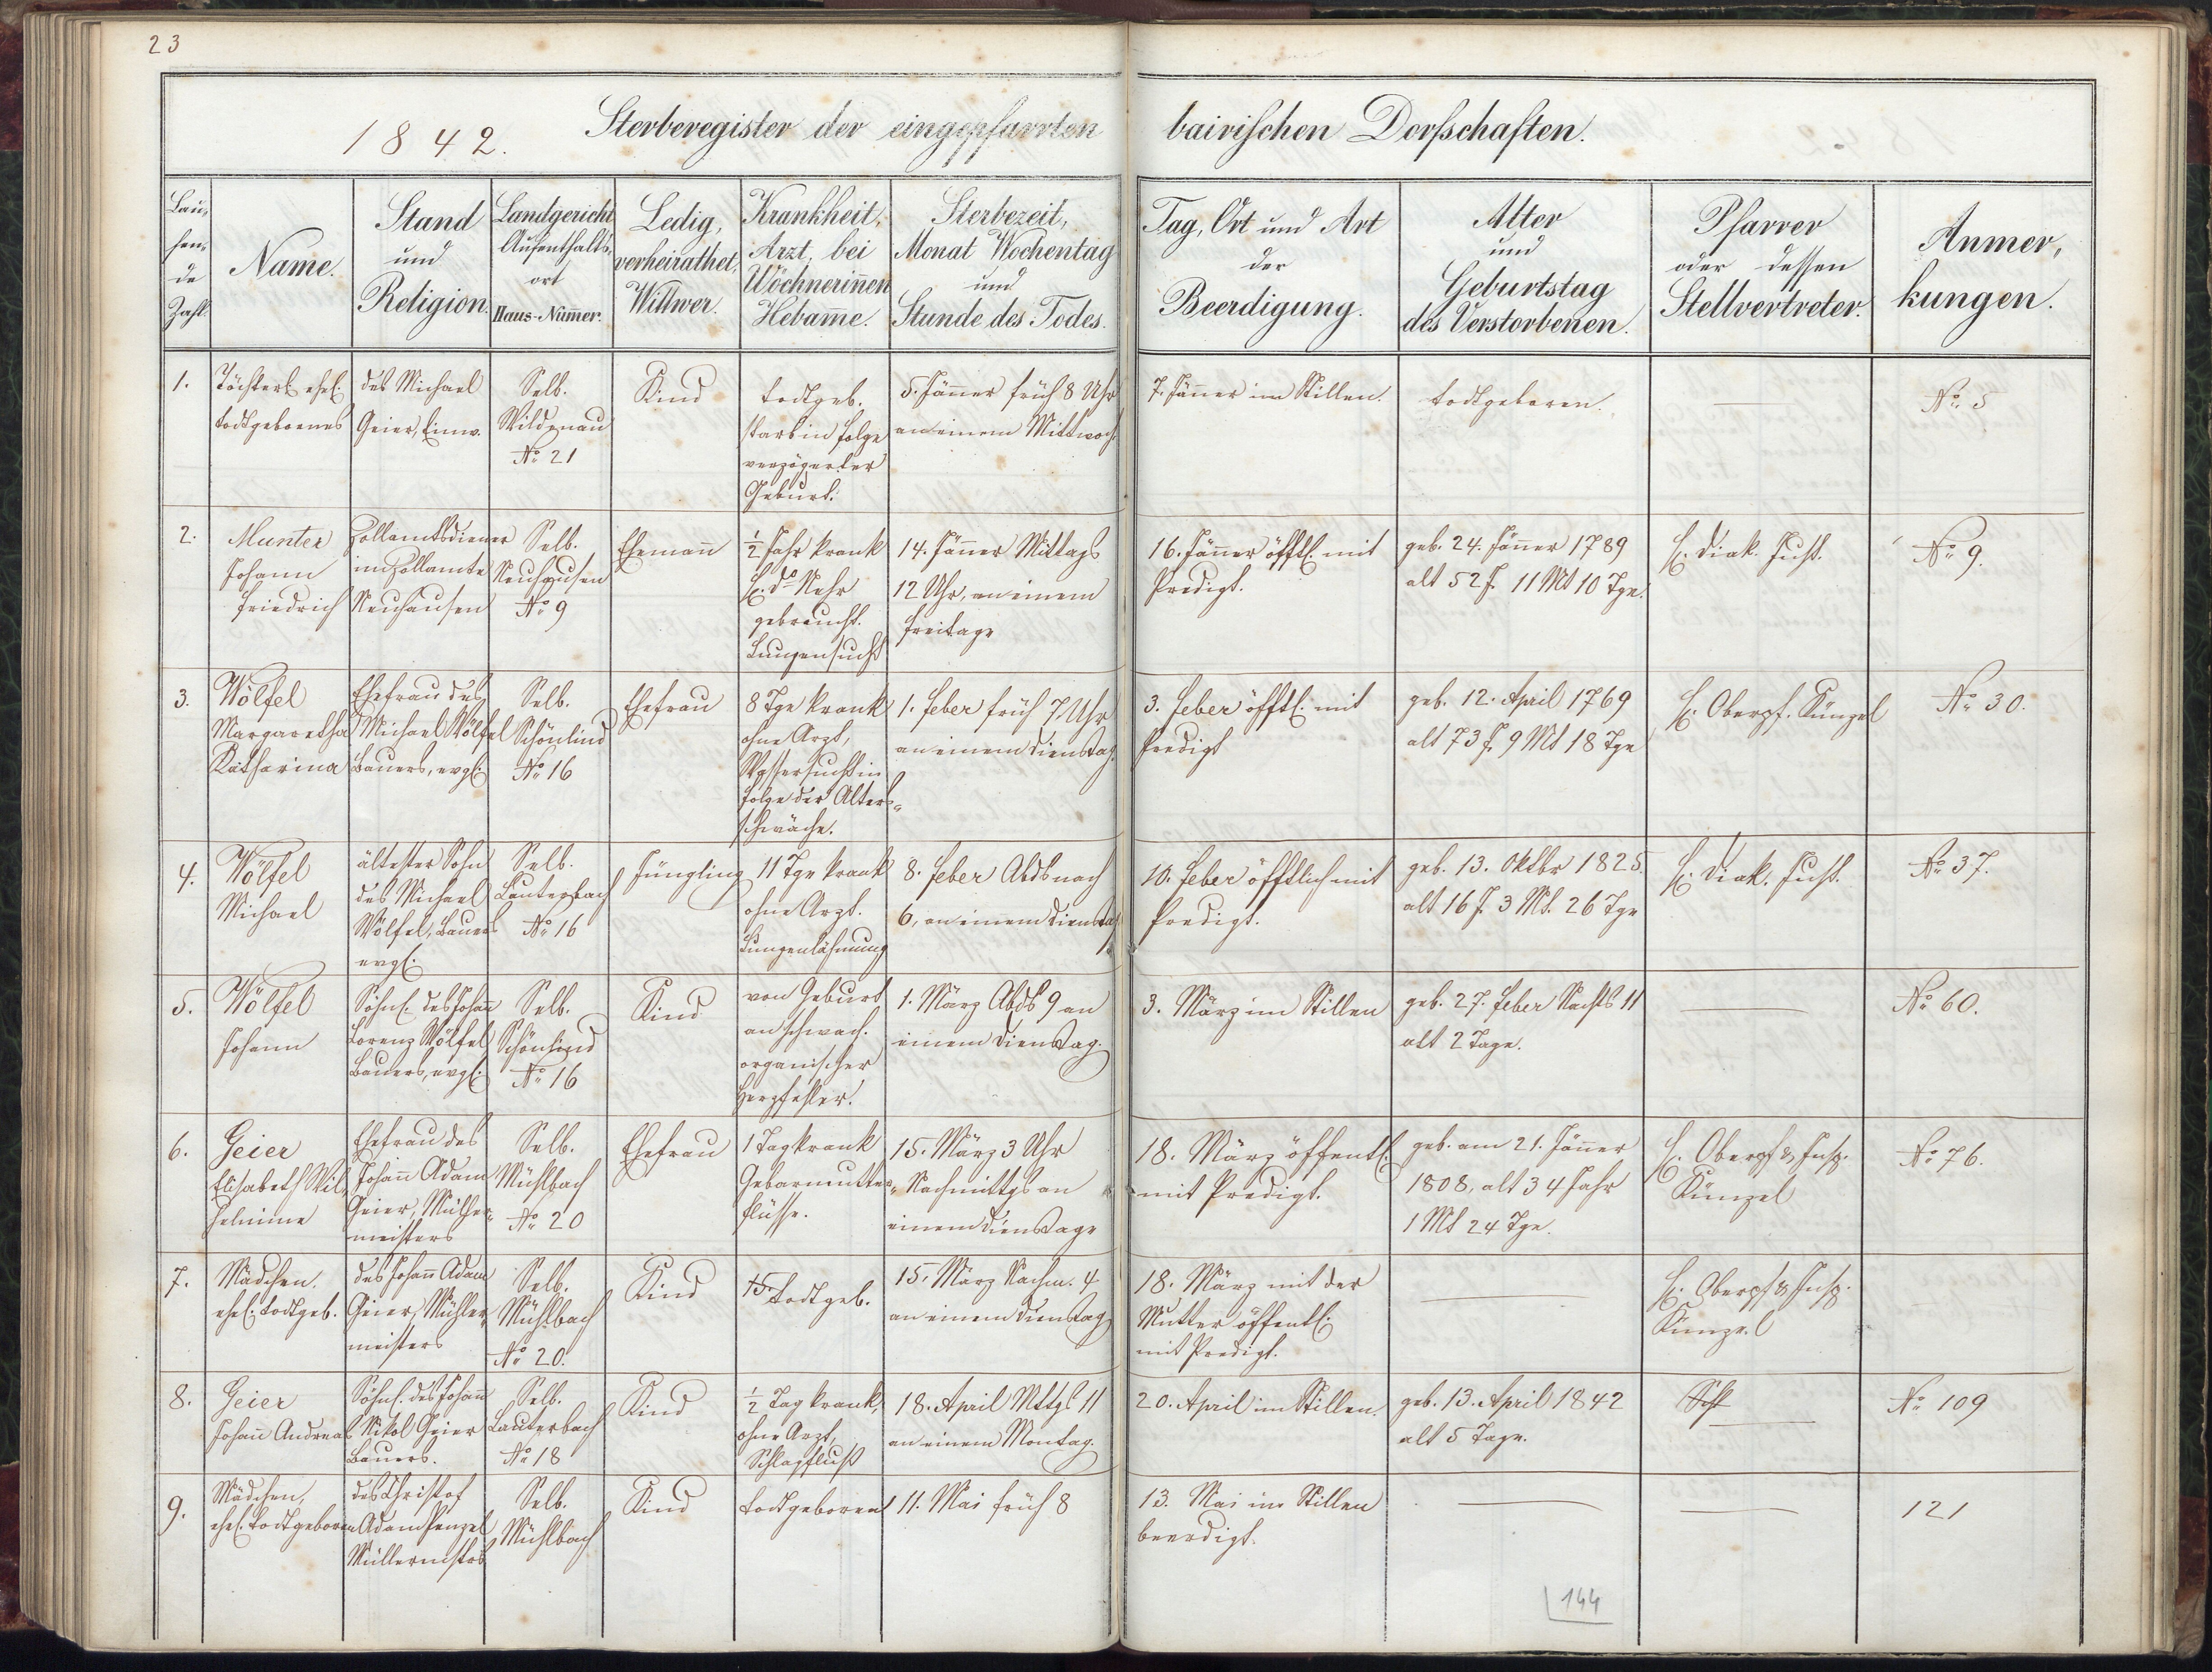 23
1842. Sterberegister der eingepfarrten bairischen Dorfschaften.
Lau-
fen-
de
Zahl
Name.
Stand
und
Religion.
Landgericht
Aufenthalts-
ort
Haus-Num̄er.
Ledig,
verheirathet,
Wittwer.
Krankheit,
Arzt, bei
Wöchnerin̄en
Hebam̄e.
Sterbezeit,
Monat Wochentag
und
Stunde des Todes.
Tag, Ort und Art
der
Beerdigung.
Alter
und
Geburtstag
des Verstorbenen.
Pfarrer
oder dessen
Stellvertreter.
Anmer-
kungen.
1.
Töchterl. ehel.
todtgebornes
des Michael
Geier, Einw.
Selb.
Wildenau
No 21
Kind
todtgeb.
starb in Folge
verzögerter
Geburt.
5. Jän̄er früh 8 Uhr
an einem Mittwoch
7. Jän̄er im Stillen.
todtgeboren.
No. 5
2.
Munter
Johann
Friedrich
Zollamtsdiener
im Zollamte
Neuhausen
Selb.
Neuhausen
No 9
Eheman̄
½ Jahr krank
H. Do
gebraucht.
Lungensucht
14. Jän̄er Mittags
12 Uhr, an einem
Freitage
16. Jän̄er öfftl. mit
Predigt.
geb. 24. Jän̄er 1789
alt 52 J. 11 Mt 10 Tge.
H. Diak. Just.
No 9.
3.
Wölfel
Margaretha
Katharina
Ehefrau des
Michael Wölfel
Bauers, evgl.
Selb.
Schönlind
No 16
Ehefrau
8 Tge krank
ohne Arzt,
Wassersucht in
Folge der Alters-
schwäche.
1. Feber früh 7 Uhr
an einem Dienstag.
3. Feber öfftl. mit
Predigt
geb. 12. April 1769
alt 73 J. 9 Mt 18 Tge
H. Oberpf. Künzel
No 30.
4.
Wölfel
Michael
ältester Sohn
des Michael
Wölfel, Bauers
evgl.
Selb.
Lauterbach
No 16
Jüngling
11 Tge krank
ohne Arzt.
Lungenlähmung
8. Feber Abds nach
6, an einem Dienstag
10. Feber öfftlich mit
Predigt.
geb. 13. Oktbr 1825.
alt 16 J. 3 Mt. 26 Tge
H. Diak. Just.
No 37.
5.
Wölfel
Johann
Söhnl. des Johan̄
Lorenz Wölfel
Bauers, evgl.
Selb.
Schönlind
No 16
Kind
von Geburt
an schwach.
organischer
Herzfehler.
1. März Abds 9 an
einem Dienstag.
3. März im Stillen
geb. 27. Feber Nachts 11
alt 2 Tage.
No 60.
6.
Geier
Elisabeth Wil-
helmine
Ehefrau des
Johan̄ Adam
Geier, Mühler-
meisters
Selb.
Mühlbach
No 20
Ehefrau
1 Tag krank
Gebärmutter-
flüsse.
15. März 3 Uhr
Nachmittgs an
einem Dienstage
18. März öffentl.
mit Predigt.
geb. am 21. Jän̄er
1808, alt 34 Jahr
1 Mt 24 Tge.
H. Oberpf & Insp.
Künzel
No 76.
7.
Mädchen.
ehel. todtgeb.
des Johan̄ Adam
Geier, Mühler-
meisters
Selb.
Mühlbach
No 20.
Kind
todtgeb.
15. März Nachm. 4
an einem Dienstag
18. März mit der
Mutter öffentl.
mit Predigt.
H. Oberpf & Insp.
Künzel
8.
Geier
Johan̄ Andreas
Söhnl. des Johan̄
Nikol Geier
Bauers.
Selb.
Lauterbach
No 18
Kind
½ Tag krank,
ohne Arzt,
Schlagfluß
18. April Mttgs 11
an einem Montag.
20. April im Stillen.
geb. 13. April 1842
alt 5 Tage.
No 109
9.
Mädchen,
ehel. todtgeboren
des Christof
Adam Penzel
Müllermstrs
Selb.
Mühlbach
Kind
todtgeboren
11. Mai früh 8
13. Mai im Stillen
beerdigt.
121
144